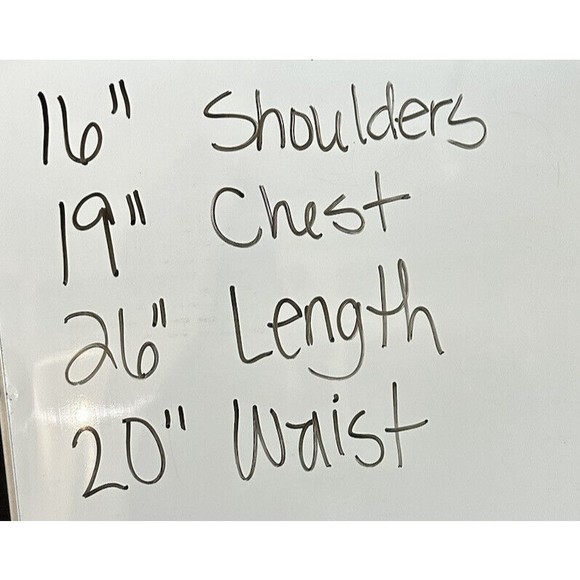 16" Shoulders
19" Chest
26" Length
20" Waist